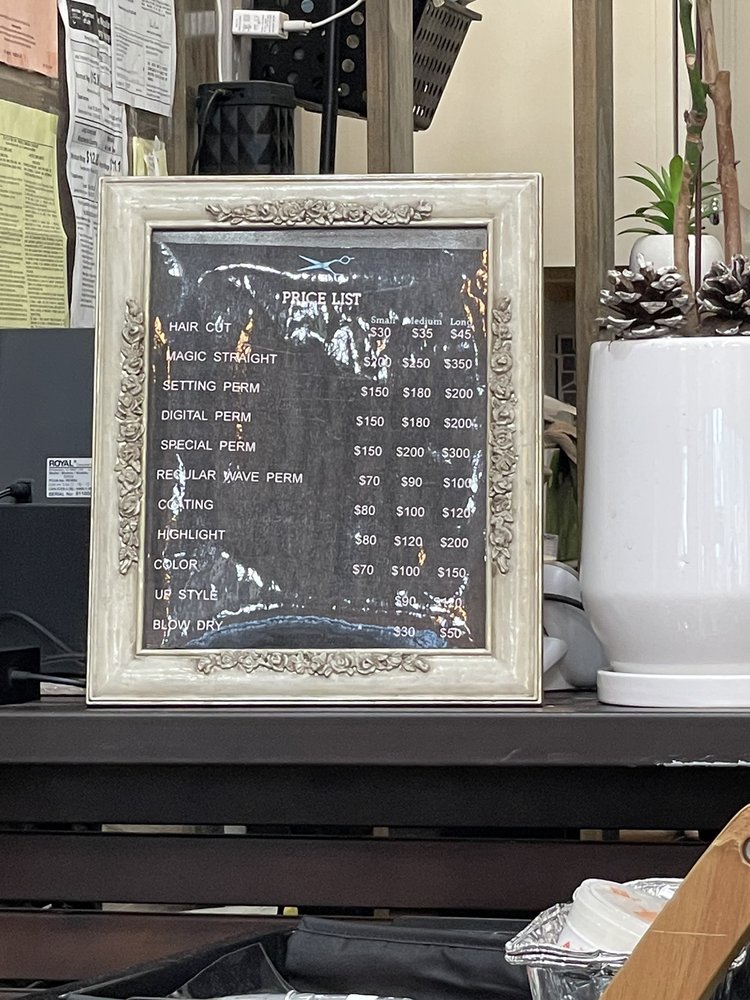 PRICE LIST
Small Medium Long
HAIR CUT $30 $35 $45
MAGIC STRAIGHT $200 $250 $350
SETTING PERM $150 $180 $200
DIGITAL PERM $150 $180 $200
SPECIAL PERM $150 $200 $300
REGULAR WAVE PERM $70 $90 $100
COATING $80 $100 $120
HIGHLIGHT $80 $120 $200
COLOR $70 $100 $150
UP STYLE $90 $120
BLOW DRY $30 $50
ROYAL